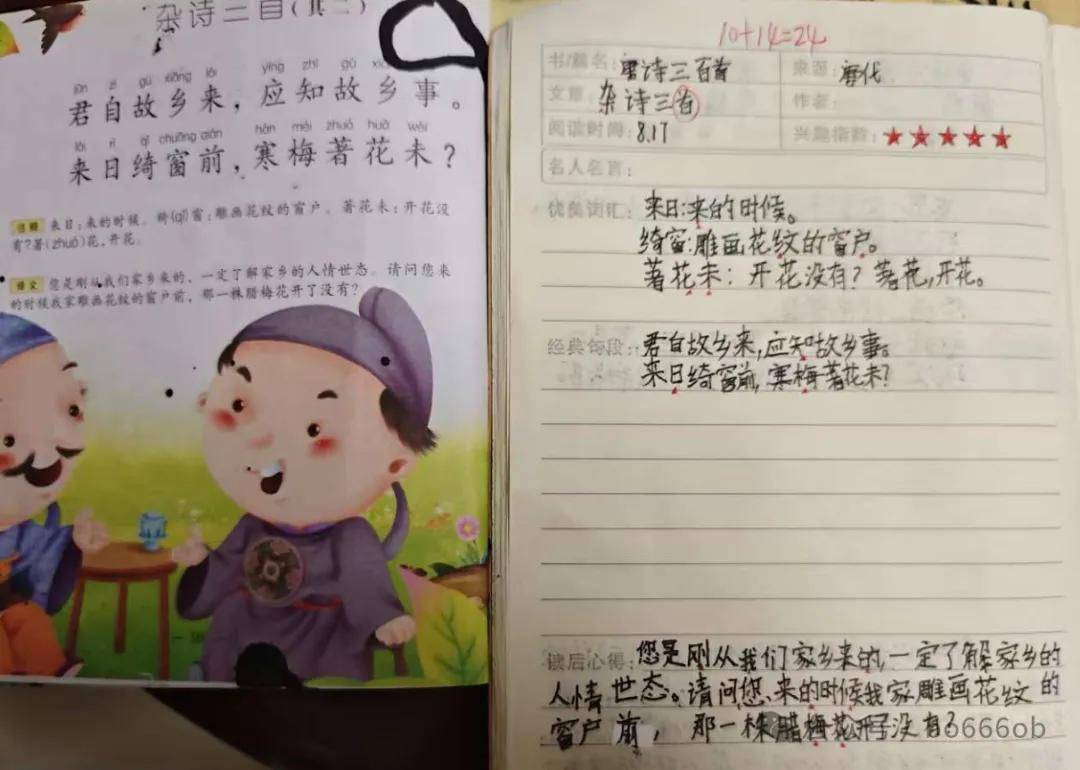 杂诗三首（其二）
jūn zì gù xiāng lái yīng zhī gù xiāng
君自故乡来，应知故乡事。
lái rì qǐ chuāng qián hán méi zhuó huā wèi
来日绮窗前，寒梅著花未？
注释 来日：来的时候。绮(qǐ)窗：雕画花纹的窗户。著花未：开花没
有？著(zhuó)花，开花。
译文 您是刚从我们家乡来的，一定了解家乡的人情世态。请问您来
的时候我家雕画花纹的窗户前，那一株腊梅花开了没有？
10+14=24
书/篇名：唐诗三百首
来源：唐代
文章：杂诗三首
作者：
阅读时间：8.17
兴趣指数：★★★★★
名人名言：
优美词汇：来日：来的时候。
绮窗：雕画花纹的窗户。
著花未：开花没有？著花，开花。
经典句段：君自故乡来，应知故乡事。
来日绮窗前，寒梅著花未？
读后心得：您是刚从我们家乡来的，一定了解家乡的
人情世态。请问您、来的时候我家雕画花纹的
窗户前，那一株腊梅花开了没有？
3666ob